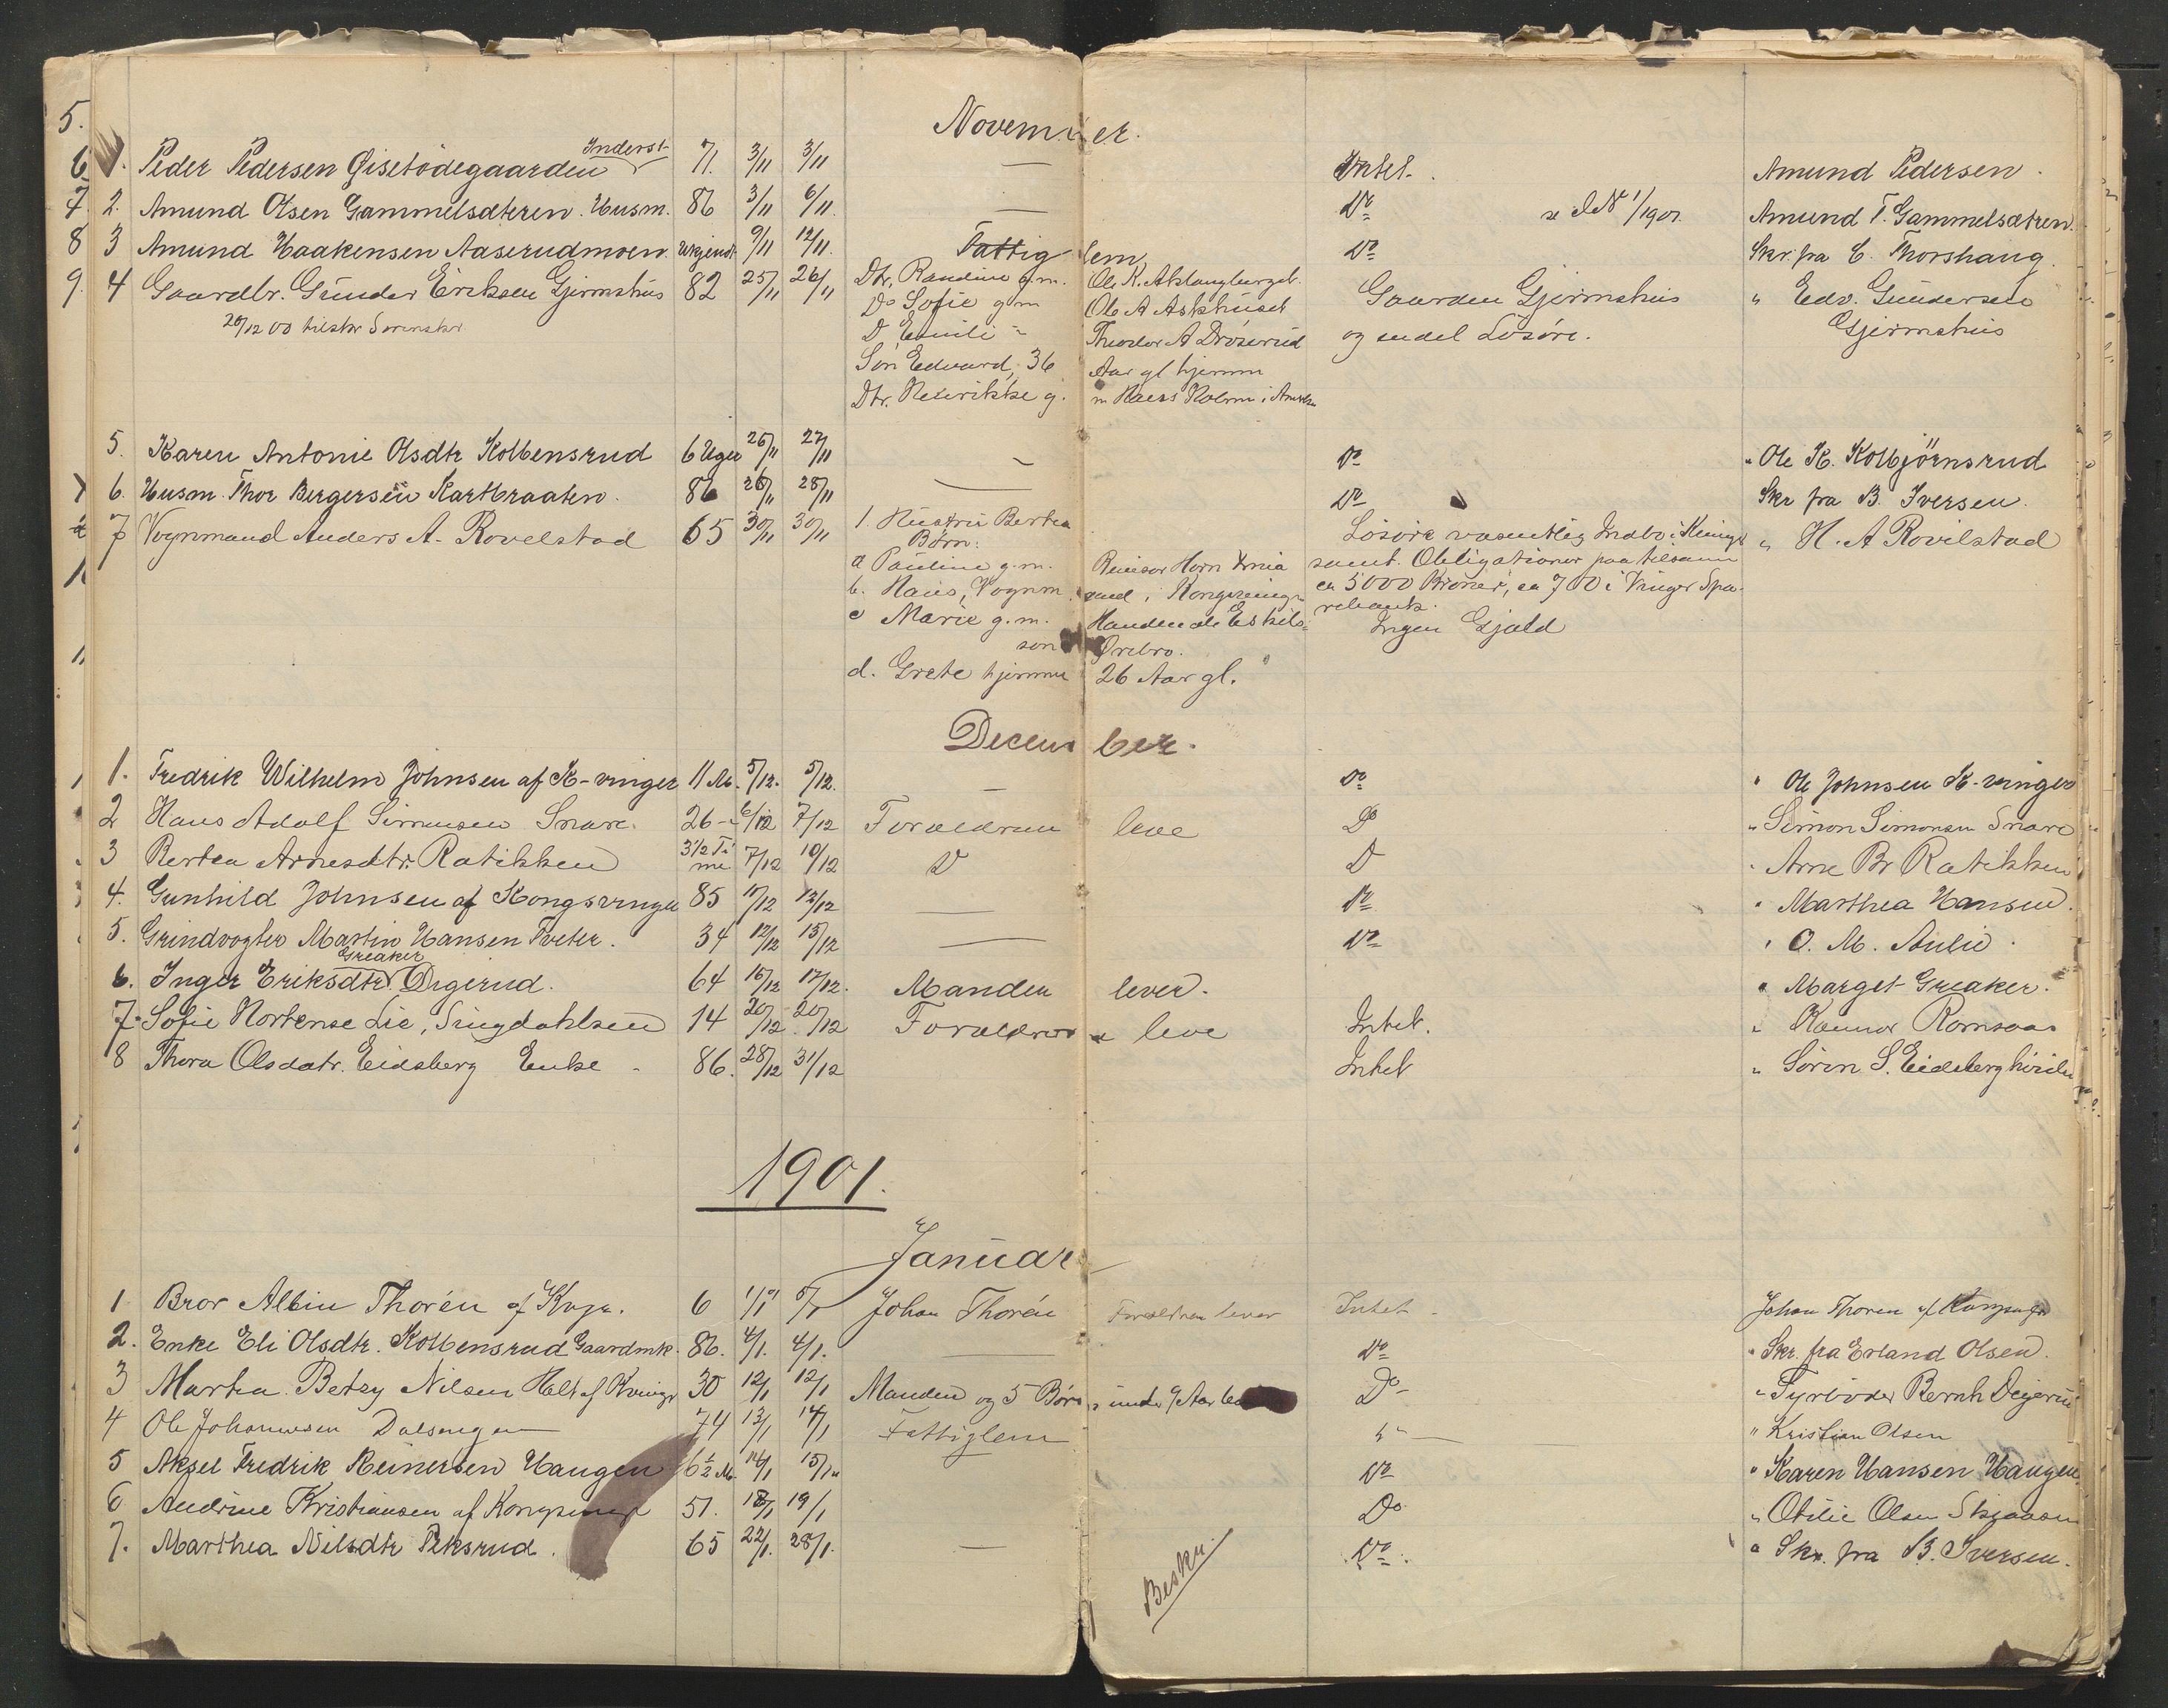 November.
1. Peder Pedersen Gisetødegaarden Inderst 71. 3/11 3/11 — Intet. Amund Pedersen.
2. Amund Olsen Gammelsæteren. Husm. 86 3/11 6/11. — Do 1/1901. Amund T. Gammelsætren
3 Amund Haakensen Aaserudmoen. Ukjendt 9/11 12/11. Fattiglem Do Skr. fra C. Thorshaug.
4 Gaardbr. Gunder Eriksen Gjermshus 82 25/11 26/11 Dtr. Randine g.m. Gaarden Gjermshus " Edv. Gundersen
20/12 00 Do Sofie g.m. Ole A Askhuset Gjermshus
D Emili " Theodor A Drøserud og endel Løsøre.
Søn Edvard, 36 Aar gl hjemme
Dtr. Hendrikke g. m Hans Holm i Amerika
5. Karen Antonie Olsdtr Kolbensrud 6 Uger 26/11 27/11 — Do " Ole K. Kolbjørnsrud
6. Husm. Thor Bergersen Kartbraaten. 86 26/11 28/11 — Do Skr fra B. Iversen.
7 Vognmand Anders A. Rovelstad 65 30/11 30/11 1. Hustru Bertea Løsøre væsentlig Indbo i " H. A Rovelstad
Børn: samt Obligationer paa tilsamm
a Pauline g.m. Reinsor Horn
b. Hans, Vognmand i Kongsvinger ca 5000 Kroner, ca 700 i Vinger Spa-
rebank.
c Marie g.m. Handlende Eskils- Ingen Gjæld
son Ørebro.
d. Grete hjemme 26 Aar gl.
December.
1. Fredrik Wilhelm Johnsen af K-vinger 11 M. 5/12. 5/12. — Do " Ole Johnsen K-vinger
2 Hans Adolf Simensen Snare. 26 6/12 7/12 Forældrene leve Do " Simon Simonsen Snare
3 Bertea Arnesdtr. Ratikken 3 1/2 Ti me 7/12 10/12 D D " Arne Br Ratikken
4. Gunhild Johnsen af Kongsvinger 85 10/12 12/12 — Do " Marthea Hansen.
5. Grindvogter Martin Hansen Tveter. 34 12/12 15/12 — Do " O. M. Aulie.
Greaker
6. Inger Eriksdtr. Digerud. 64 16/12 17/12. Manden lever. " Marget Greaker.
7. Sofie Hortense Lie, Singdahlsen 14 20/12 20/12 Forældrene leve Intet. " Ramsaas
8 Thora Olsdatr. Eidsberg Enke 86. 28/12 31/12 Intet " Søren S. Eidsberg
1901.
Januar
1 Bror Albin Thorén af Kvgr. 6 1/1 5/1 Johan Thorén Forældrene lever Intet Johan Thoren af Kongsvgr
2. Enke Eli Olsdtr. Kolbensrud Gaardmk. 86. 4/1. 4/1. — Do " Skr. fra Erland Olsen.
3 Martea Betzy Nilsen Holt af Kvinger 30 12/1 12/1 Manden og 5 Børn under 9 Aar Do " Fyrbøder Bernh Digerud
4 Ole Johannesen Dalsengen 74 13/1 14/1 Fattiglem " — " Kristian Olsen
5 Aksel Fredrik Reinertsen Haugen 6 1/2 M. 14/1 15/1 Do " Karen Hansen Haugen.
6 Andrine Kristiansen af Kongsvinger 51. 18/1 19/1 Do " Otilie Olsen Skjaasen
7. Marthea Nilsdtr Peksrud. 65 22/1. 28/1. — Do " Skr. fra B. Iversen.
Beskr.